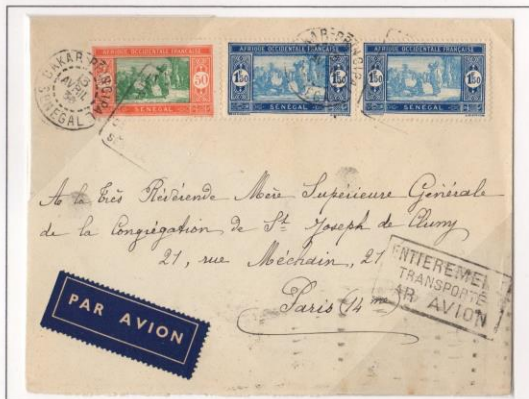 DAKAR-PRINCIPAL
13
AVRIL
SÉNÉGAL
AFRIQUE OCCIDENTALE FRANÇAISE
50
SÉNÉGAL
AFRIQUE OCCIDENTALE FRANÇAISE
1.50 1.50
SÉNÉGAL
AFRIQUE OCCIDENTALE FRANÇAISE
1.50 1.50
SÉNÉGAL
A la Très Révérende Mère Supérieure Générale
de la Congrégation de St Joseph de Cluny
21, rue Méchain, 21
Paris (14me)
PAR AVION
ENTIEREMENT
TRANSPORTÉ
PAR AVION